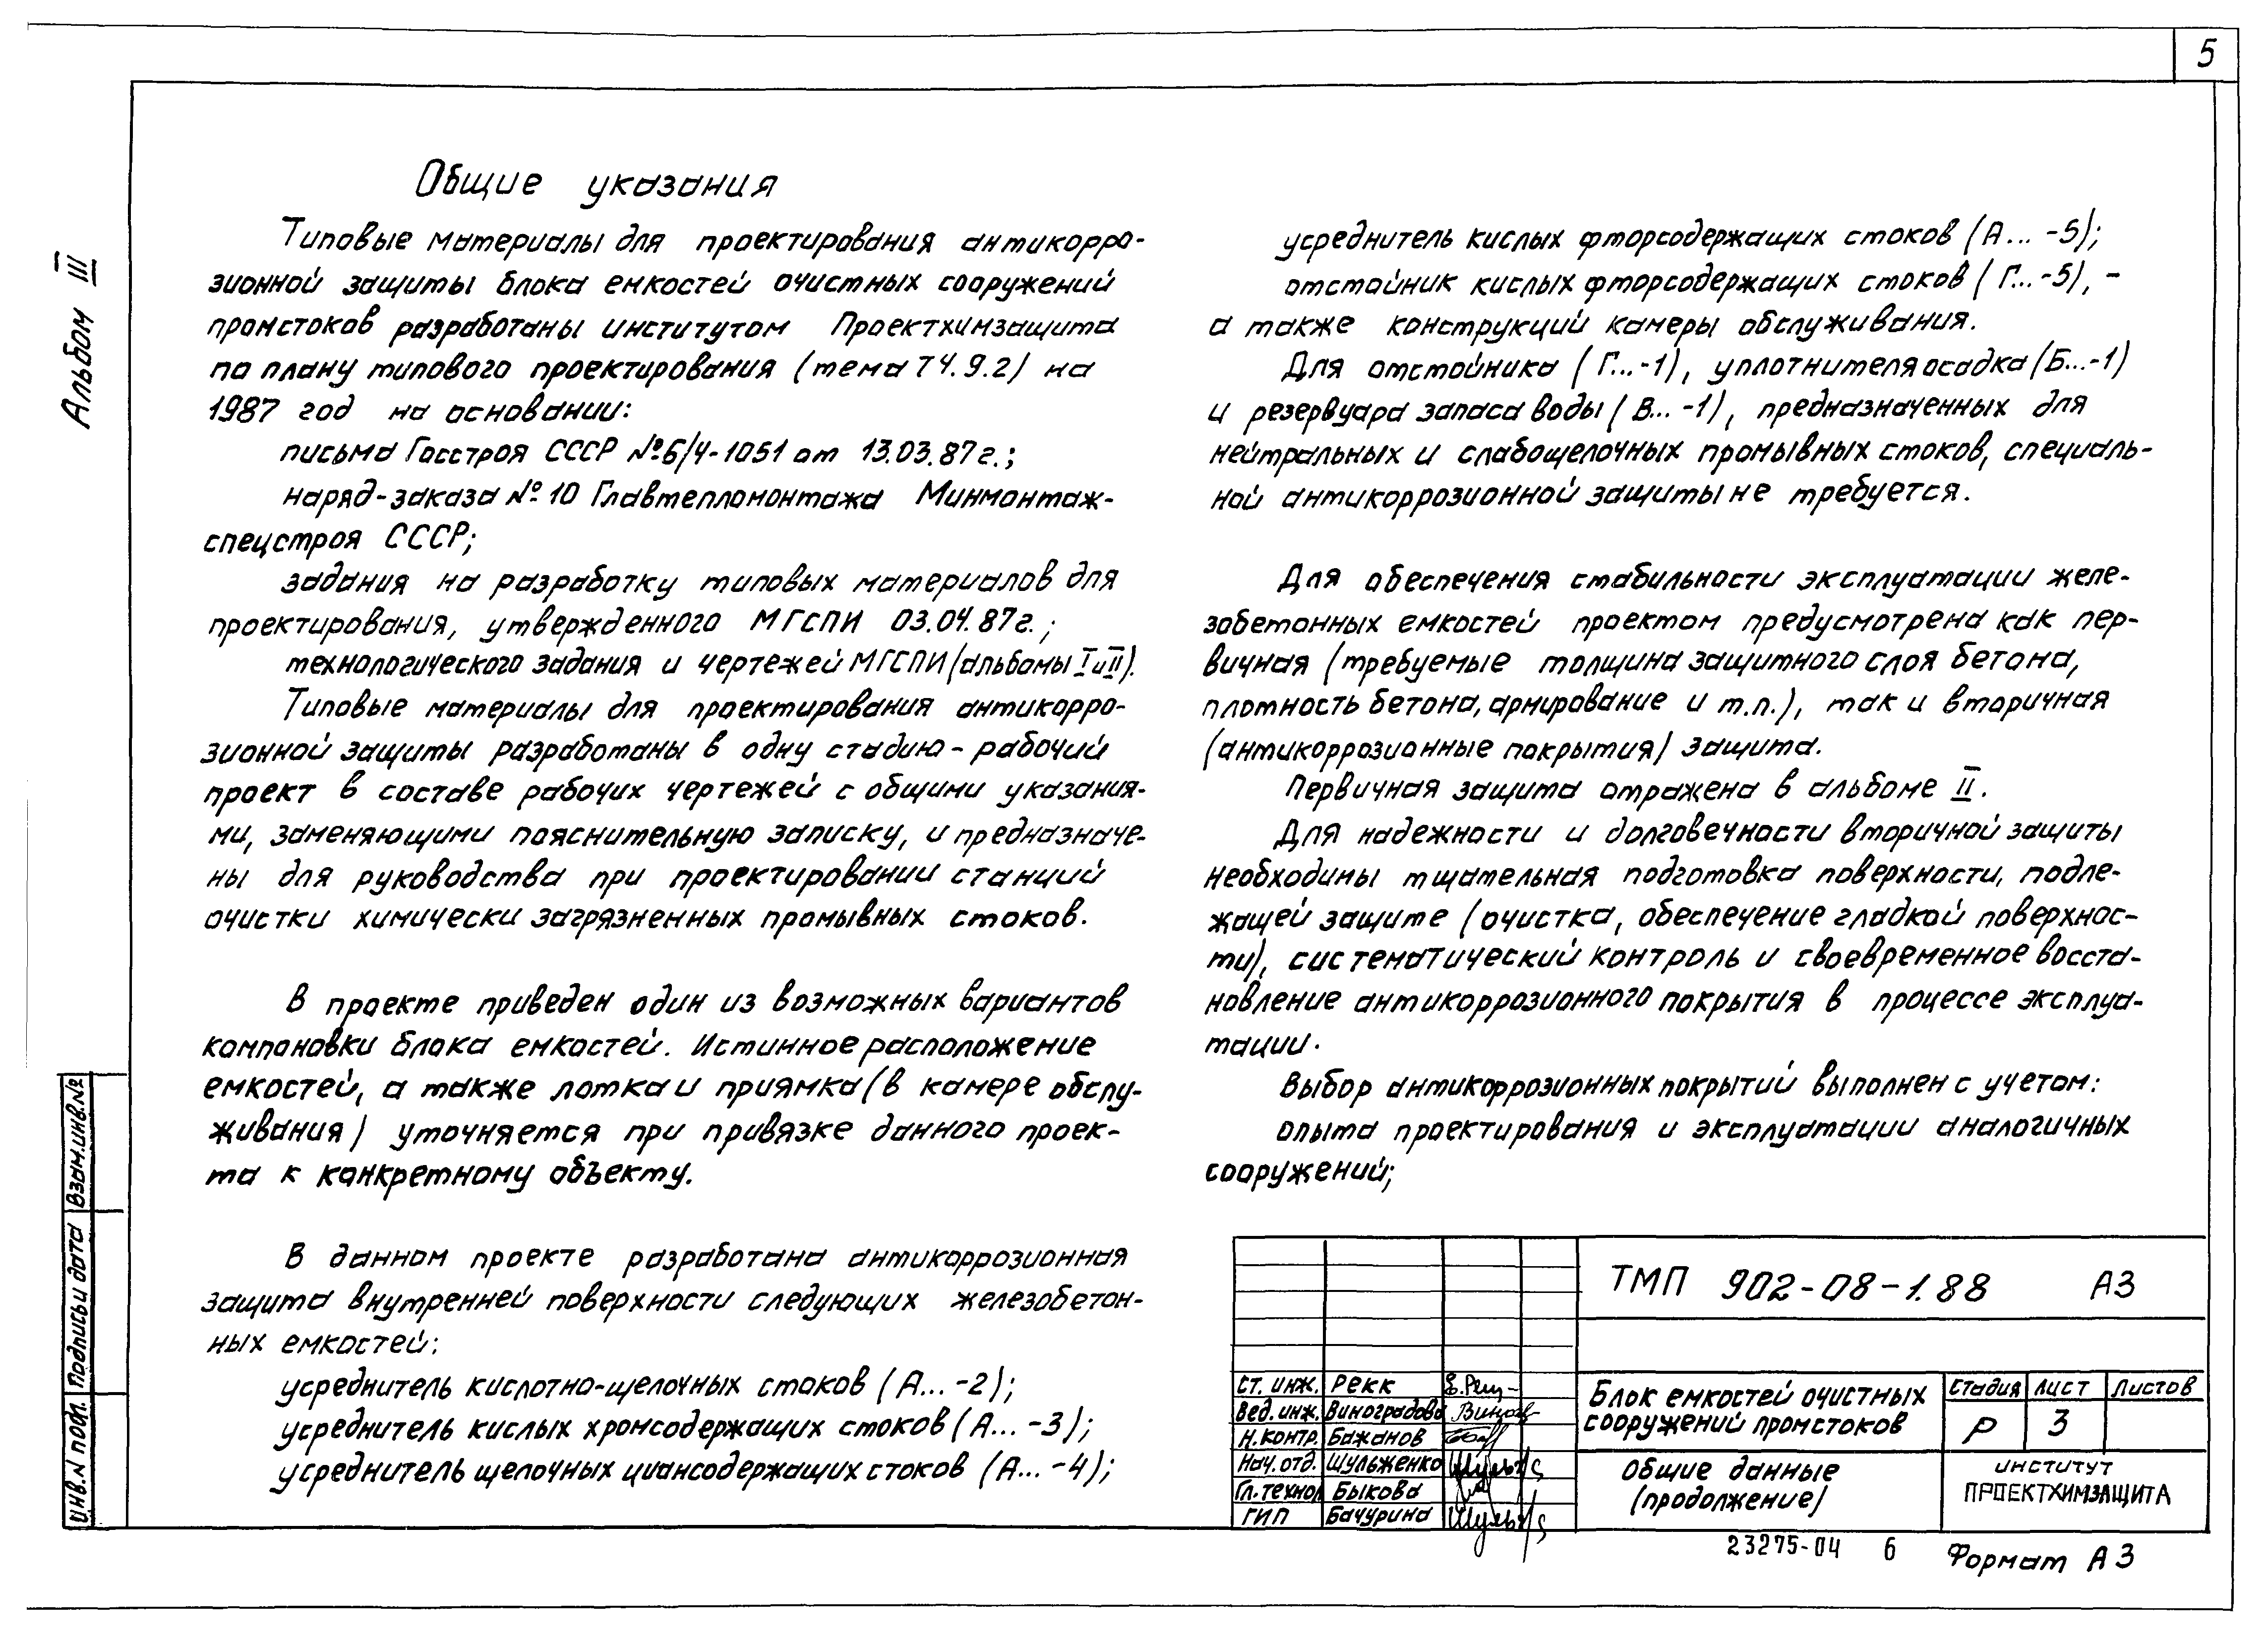 5
Альбом III
Общие указания
Типовые материалы для проектирования антикорро-
зионной защиты блока емкостей очистных сооружений
промстоков разработаны институтом Проектхимзащита
по плану типового проектирования (тема Т4.9.2) на
1987 год на основании:
письма Госстроя СССР №6/4-1051 от 13.03.87г.;
наряд-заказа №10 Главтепломонтажа Минмонтаж-
спецстроя СССР;
задания на разработку типовых материалов для
проектирования, утвержденного МГСПИ 03.04.87г.;
технологического задания и чертежей МГСПИ (альбомы I и II).
Типовые материалы для проектирования антикорро-
зионной защиты разработаны в одну стадию - рабочий
проект в составе рабочих чертежей с общими указания-
ми, заменяющими пояснительную записку, и предназначе-
ны для руководства при проектировании станций
очистки химически загрязненных промывных стоков.
В проекте приведен один из возможных вариантов
компоновки блока емкостей. Истинное расположение
емкостей, а также лотка и приямка (в камере обслу-
живания) уточняется при привязке данного проек-
та к конкретному объекту.
В данном проекте разработана антикоррозионная
защита внутренней поверхности следующих железобетон-
ных емкостей:
усреднитель кислотно-щелочных стоков (А...-2);
усреднитель кислых хромсодержащих стоков (А...-3);
усреднитель щелочных циансодержащих стоков (А...-4);
усреднитель кислых фторсодержащих стоков (А...-5);
отстойник кислых фторсодержащих стоков (Г...-5), -
а также конструкций камеры обслуживания.
Для отстойника (Г...-1), уплотнителя осадка (Б...-1)
и резервуара запаса воды (В...-1), предназначенных для
нейтральных и слабощелочных промывных стоков, специаль-
ной антикоррозионной защиты не требуется.
Для обеспечения стабильности эксплуатации желе-
зобетонных емкостей проектом предусмотрена как пер-
вичная (требуемые толщина защитного слоя бетона,
плотность бетона, армирование и т.п.), так и вторичная
(антикоррозионные покрытия) защита.
Первичная защита отражена в альбоме II.
Для надежности и долговечности вторичной защиты
необходимы тщательная подготовка поверхности, подле-
жащей защите (очистка, обеспечение гладкой поверхнос-
ти), систематический контроль и своевременное восста-
новление антикоррозионного покрытия в процессе эксплуа-
тации.
Выбор антикоррозионных покрытий выполнен с учетом:
опыта проектирования и эксплуатации аналогичных
сооружений;
Инв.N подл. Подпись и дата Взам.инв.№
ТМП 902-08-1.88 А3
Ст. инж. Рекк
Вед. инж. Виноградова
Н.контр. Бажанов
Нач.отд. Шульженко
Гл.технол Быкова
ГИП Бачурина
Блок емкостей очистных
сооружений промстоков
Стадия Лист Листов
Р 3
Общие данные
(продолжение)
институт
ПРОЕКТХИМЗАЩИТА
23275-04 6
Формат А3